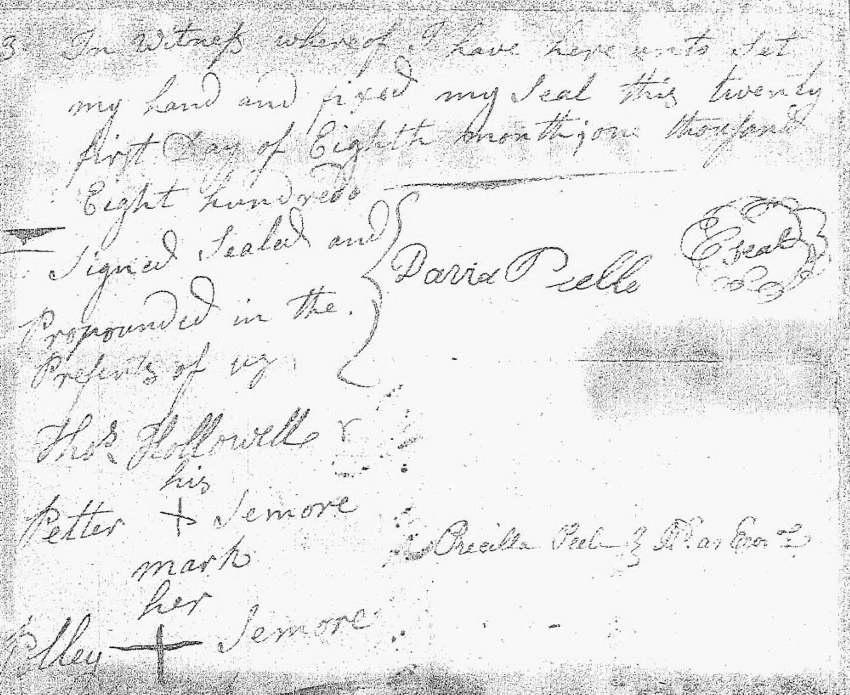 3 In Witness whereof I have here unto Set
my hand and fixed my Seal this twenty
first Day of Eighth month; one thousand
Eight hundred
Signed Sealed and
David Peelle
Seal
Propounded in the
Presents of us
Thos Hollowell
his
Petter + Semore
mark
her
Polley + Semore
Precilla Peele